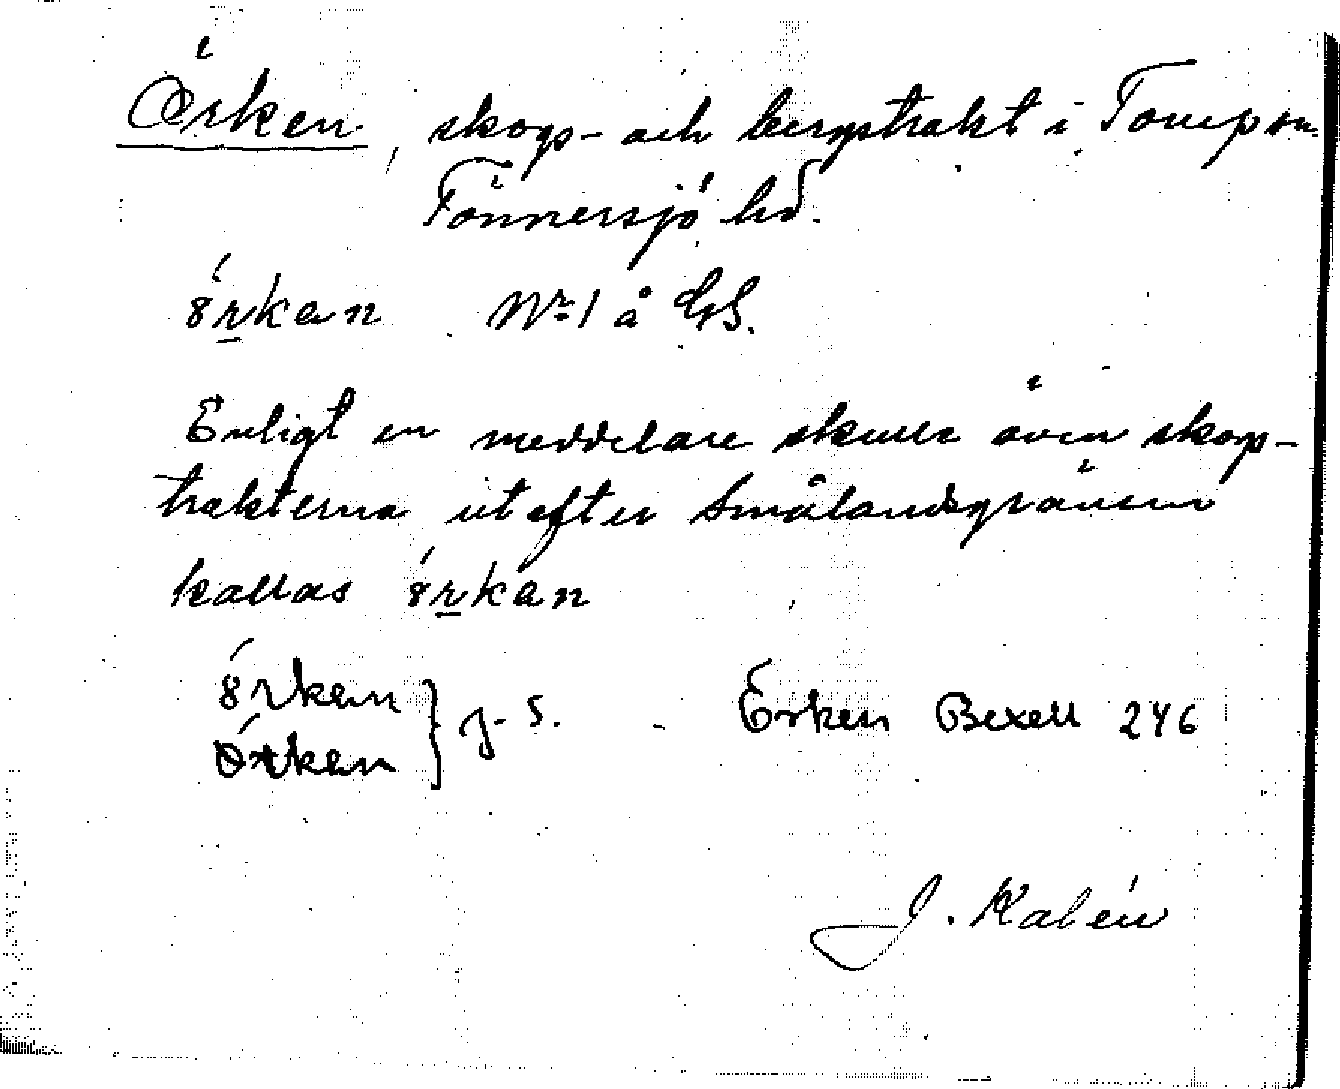 Örken, skogs- och bergstrakt i Torup sn
Tönnersjö hd.
Nr 1 å GS.
Enligt en meddelare skulle även skogs-
trakterna utefter Smålandsgränsen
kallas
Erken Bexell 246
J. Kalén